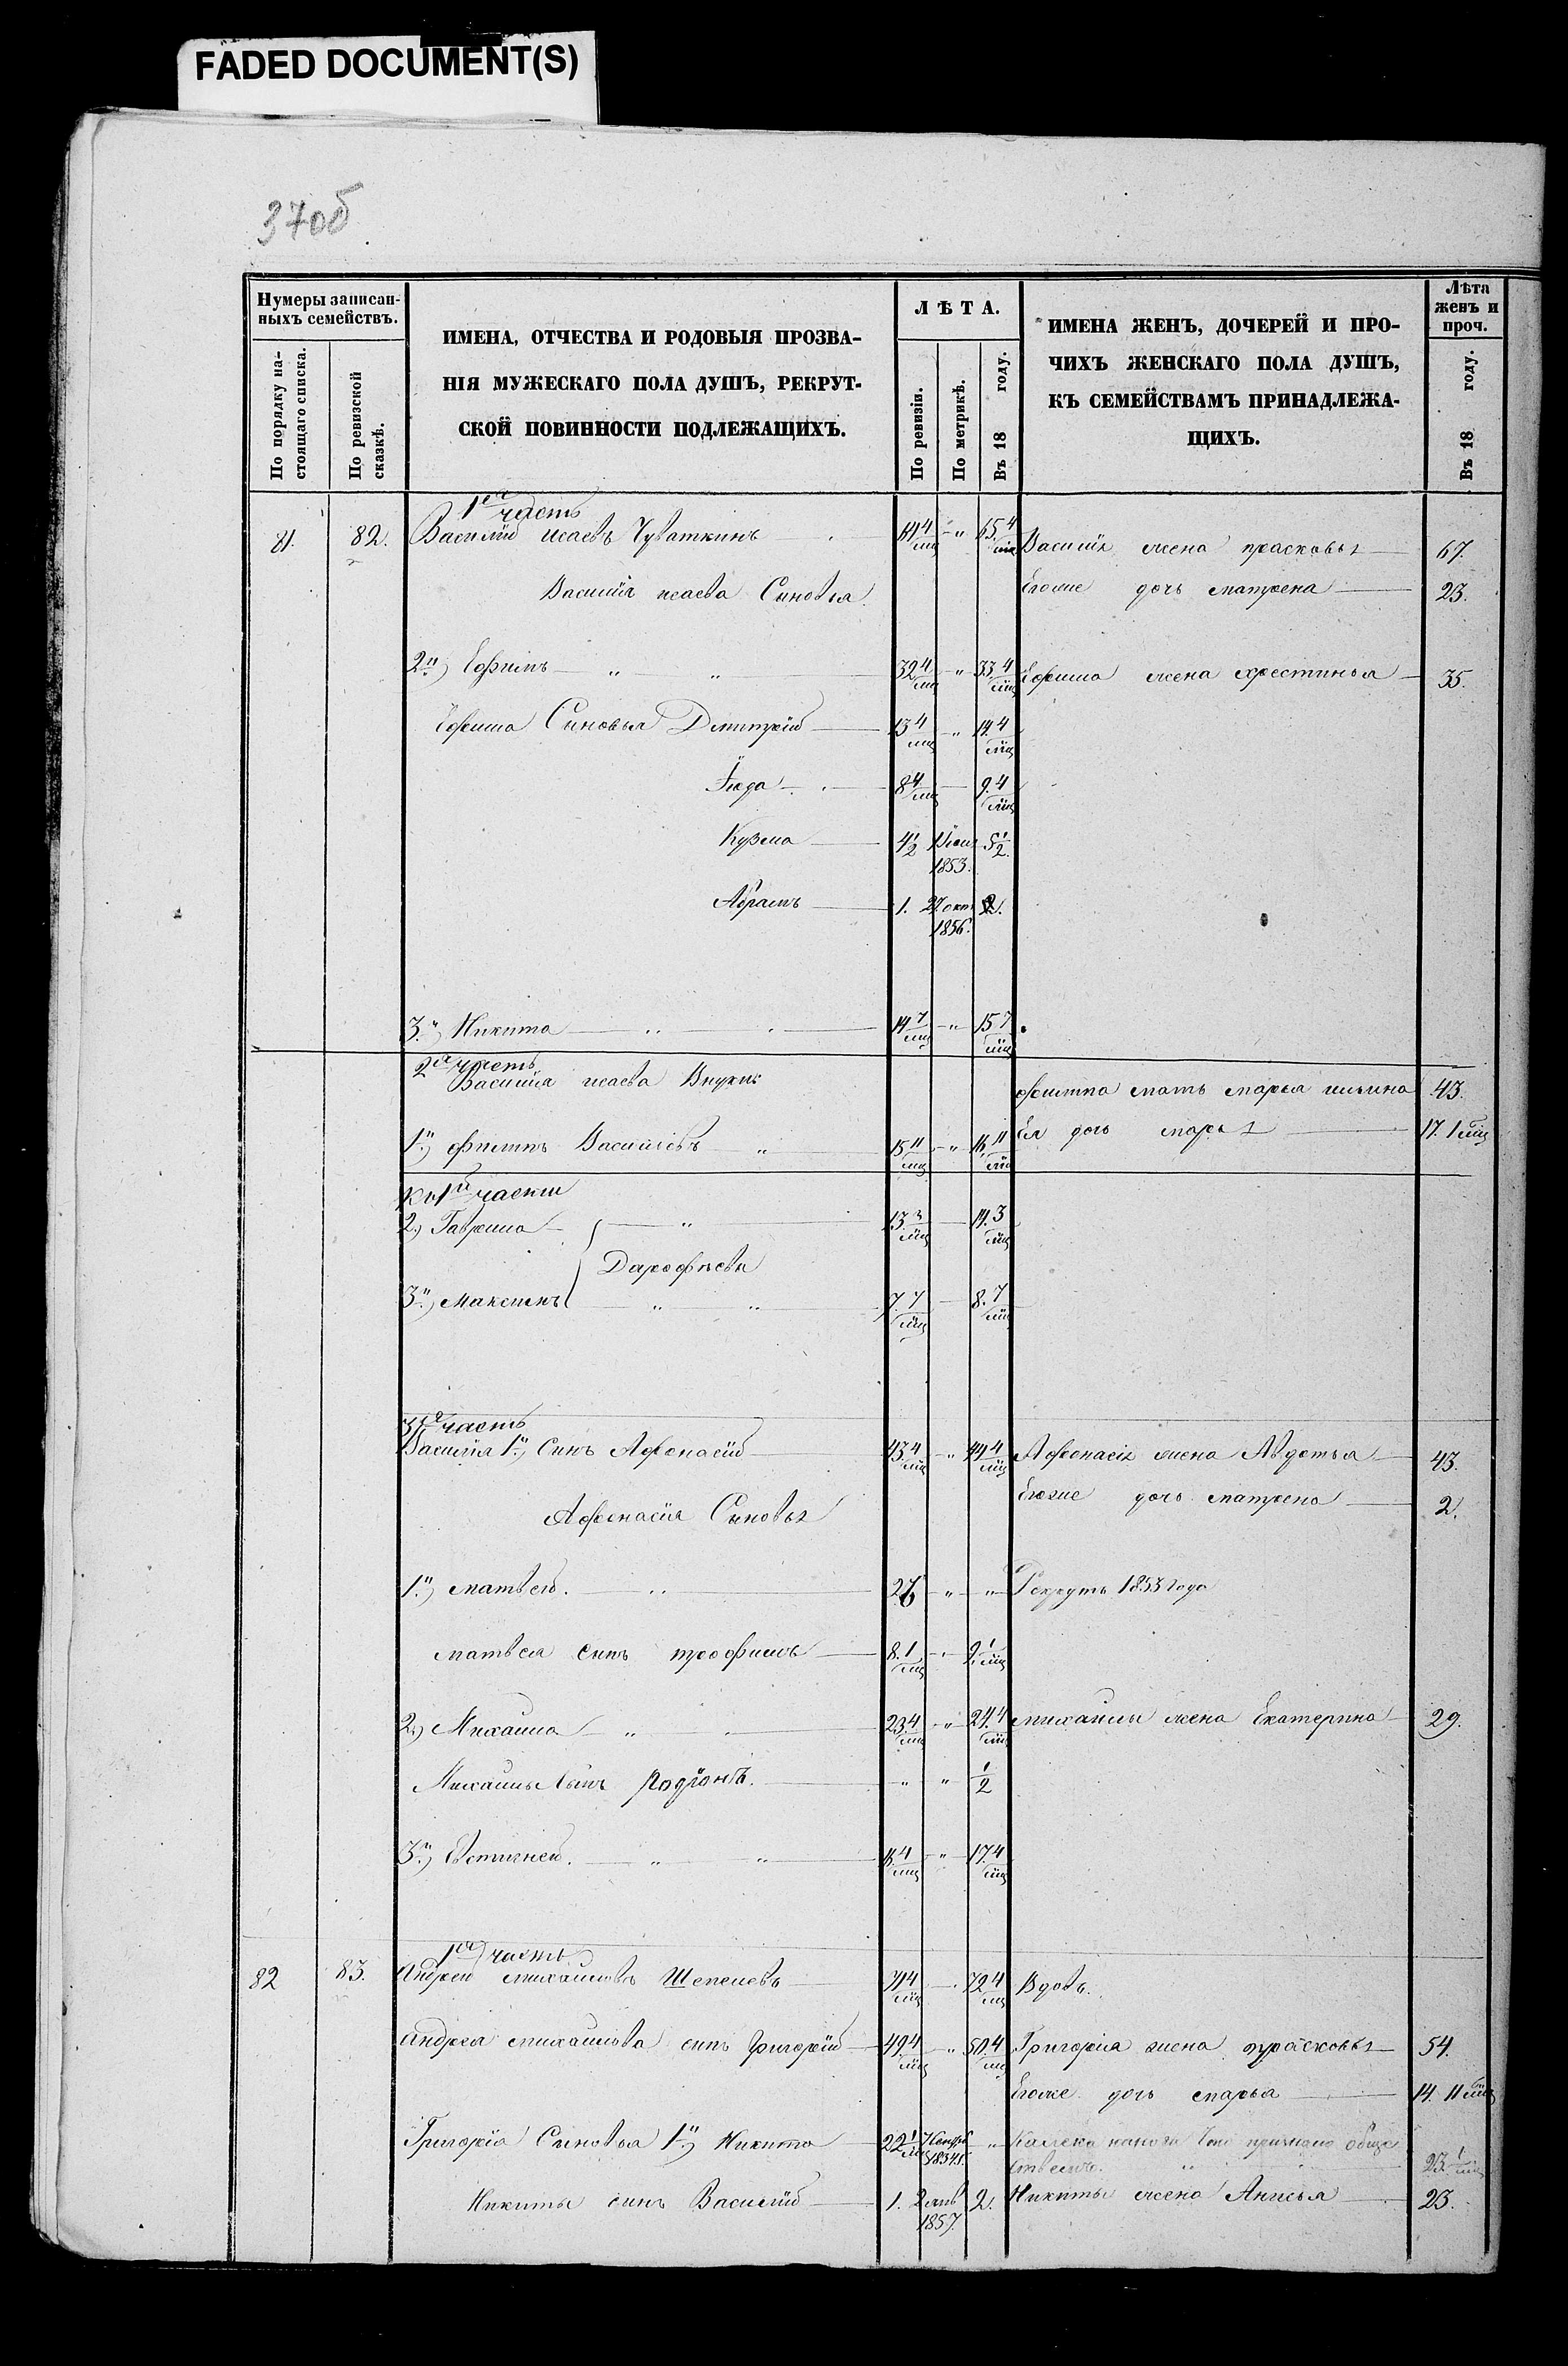 FADED DOCUMENT(S)
370б
Нумеры записан-
ныхъ семействъ.
По порядку на-
стоящаго списка.
По ревизской
сказкѣ.
ИМЕНА, ОТЧЕСТВА И РОДОВЫЯ ПРОЗВА-
НІЯ МУЖЕСКАГО ПОЛА ДУШЪ, РЕКРУТ-
СКОЙ ПОВИННОСТИ ПОДЛЕЖАЩИХЪ.
ЛѢТА.
По ревизіи.
По метрикѣ.
Въ 18 году.
ИМЕНА ЖЕНЪ, ДОЧЕРЕЙ И ПРО-
ЧИХЪ ЖЕНСКАГО ПОЛА ДУШЪ,
КЪ СЕМЕЙСТВАМЪ ПРИНАДЛЕЖА-
ЩИХЪ.
Лѣта
женъ и
проч.
Въ 18 году.
1ая часть
81. 82. Василій Исаевъ Чуваткинъ 64 4/мц " 65. 4/мц Василія жена прасковья 67.
Василія исаева Сыновья Егоже дочь матрена 23.
2й) Ефимъ " " 32 4/мц " 33 4/мц Ефима жена христинья 35.
Ефима Сыновья Дмитрій 13 4/мц " 14. 4/мц
Іюда 8 4/мц 9. 4/мц
Кузма 4 1/2 1853. 5 1/2.
Абрамъ 1. 27 окт 1856. 2.
3й) Никита 14 7/мц " 15 7/мц
2ая часть
Василія исаева Внуки филипа мать марья ильина 43.
1й) филипъ Васильевъ " 15 11/мц " 16. 11/мц Ея дочь марья 17. 1 мц
Къ 1й части
2.) Гаврила " 13 3/мц 14. 3/мц
Дарофѣевы
3й) Максимъ " " 7. 7/мц 8. 7/мц
3я часть
Василія 1й) Сынъ Афонасій 43 4/мц " 44 4/мц Афонасія жена Авдотья 43.
Егоже дочь матрена 2.
Афонасія Сыновья
1й) матвей. 26 " " Рекрутъ 1853 года
матвея сынъ трофимъ 8. 1/мц 9. 1/мц
2й) Михаила " 23. 4/мц " 24. 4/мц михаилы жена Екатерина 29.
Михаилы Сынъ Родіонъ. " " 1/2
3й) Евстигней. " " 16 4/мц " 17. 4/мц
1ая часть
82 83. Андрей михаиловъ Шепелевъ 71 4/мц 72 4/мц Вдовъ.
Андрея михаилова сынъ Григорій 49 4/мц " 50. 4/мц Григорія жена прасковья 54.
Егоже дочь марья 14. 11 мц
Григорія Сыновья 1й) Никита 22 1/мц 1834. " Калека 23. 1/мц
Никиты сынъ Василій 1. 2 янв 1857. 2. Никиты жена Анисья 23.